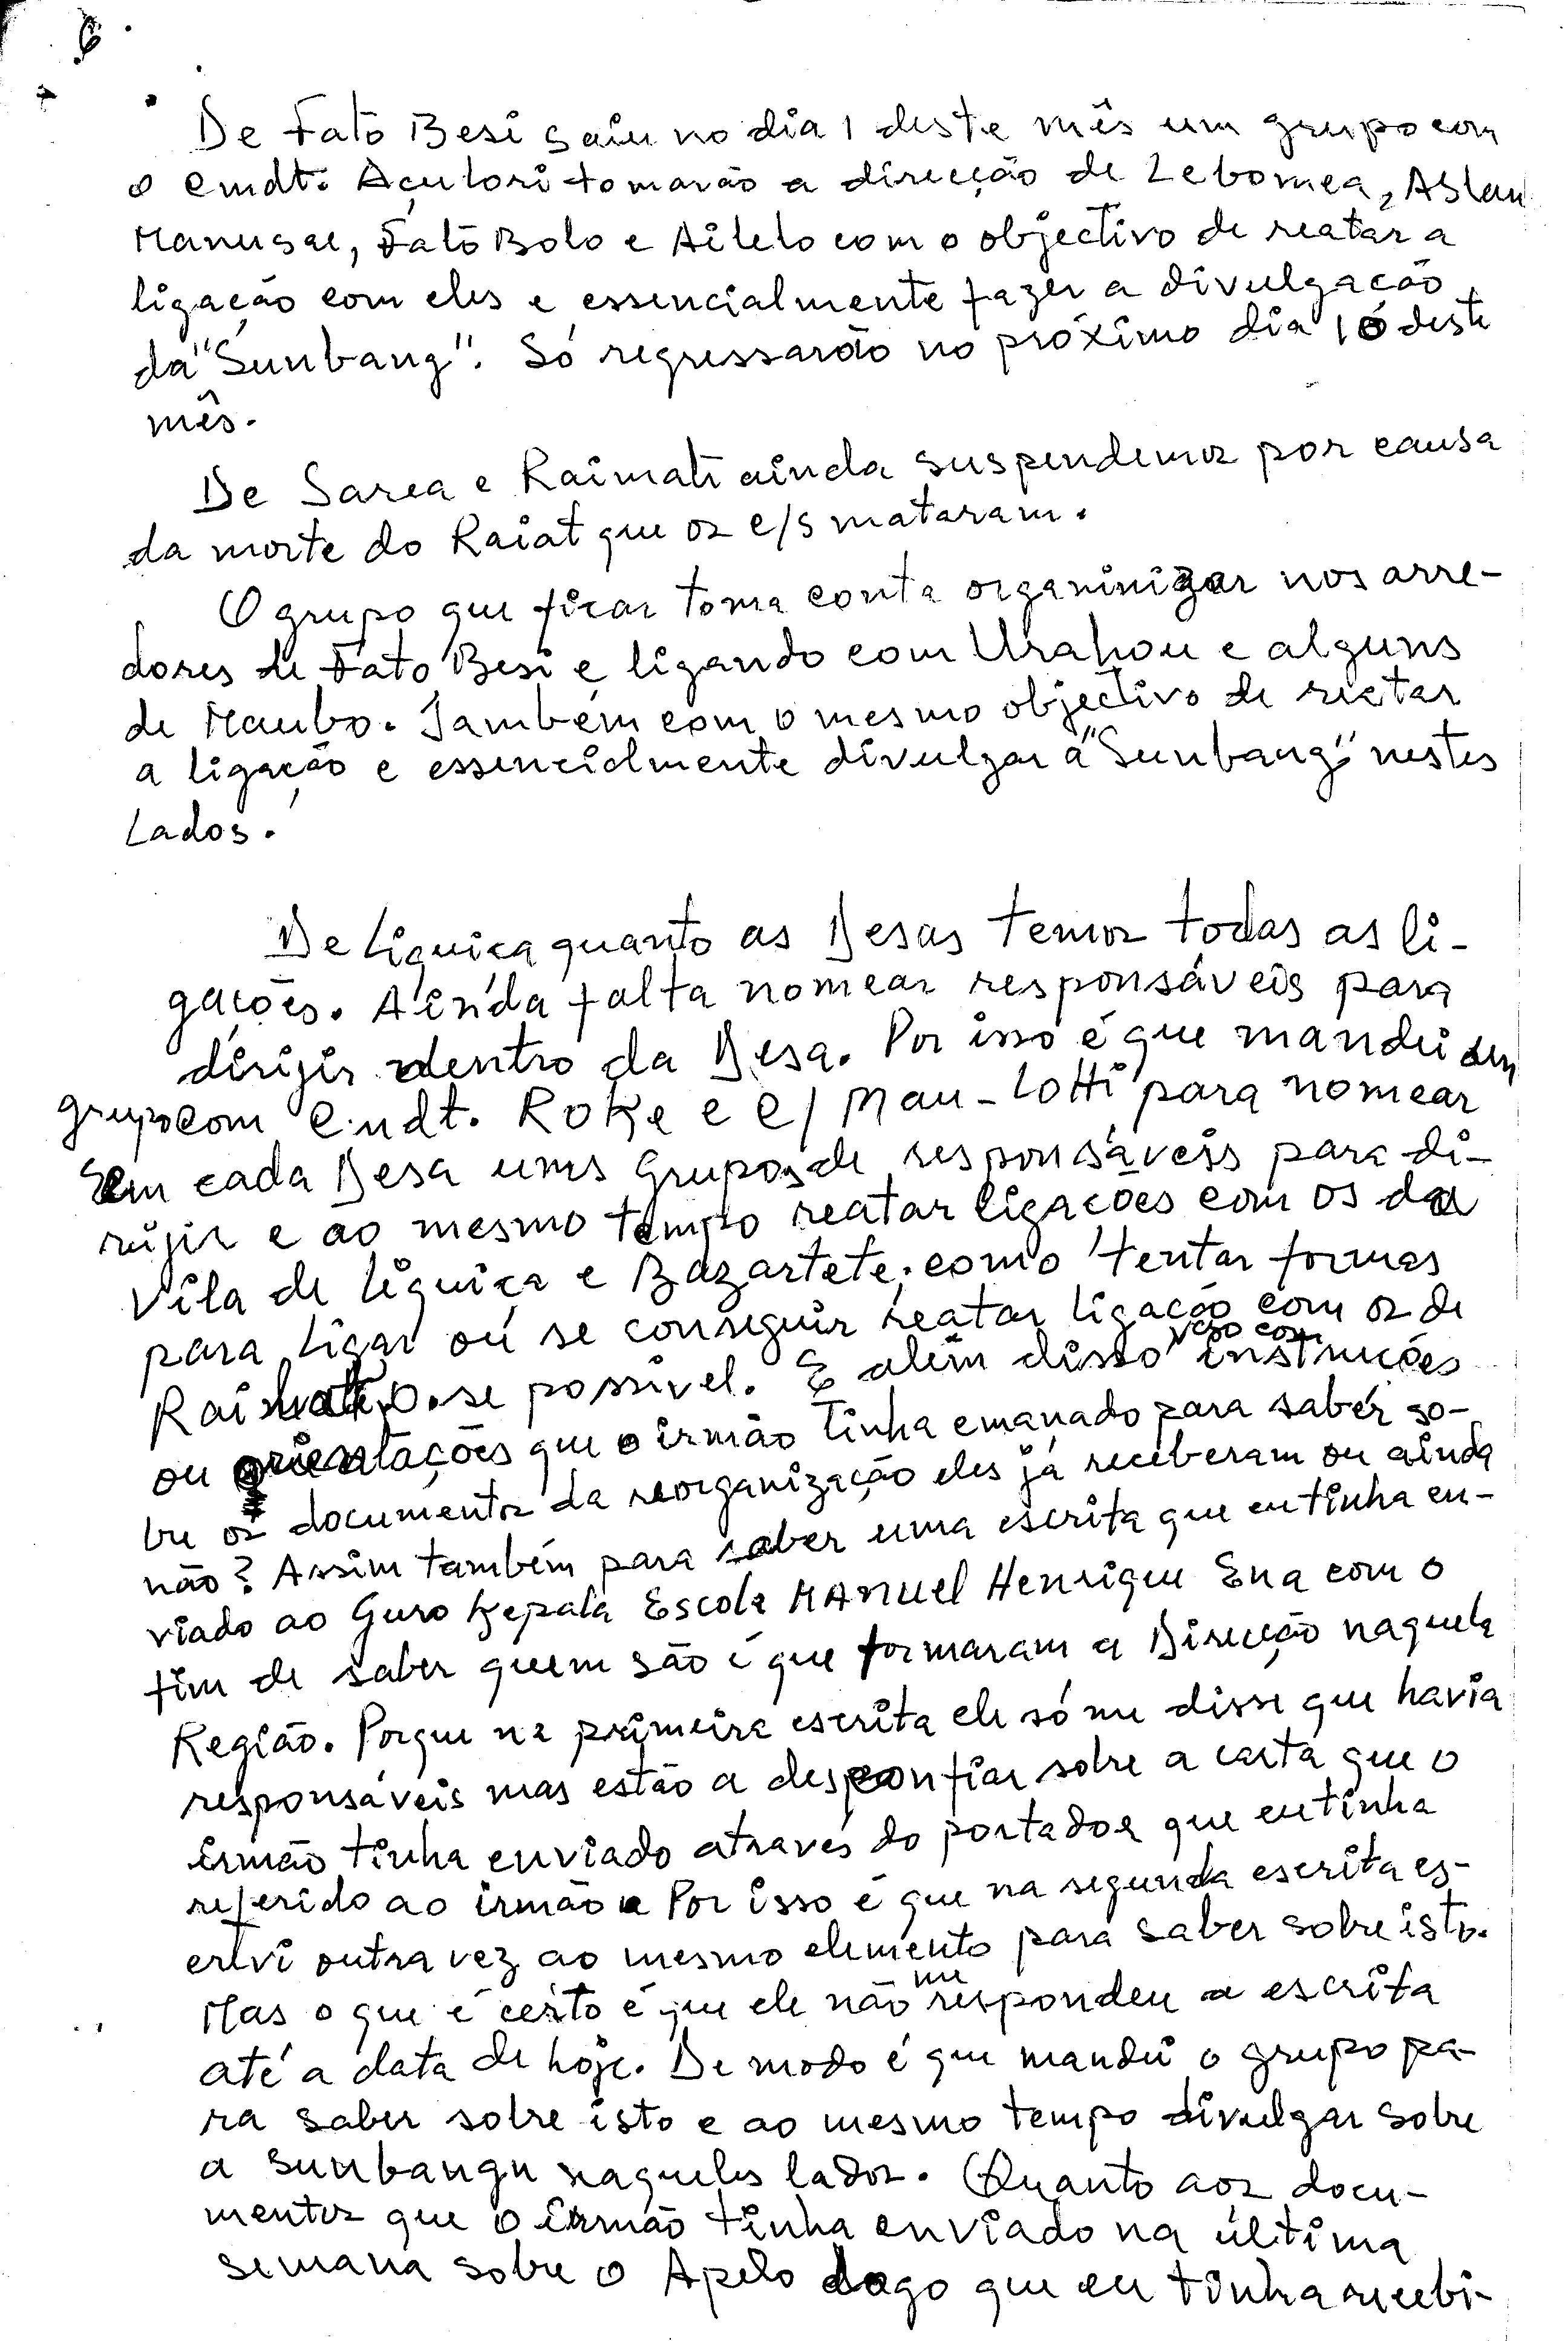 6
De Fato Besi saiu no dia 1 deste mês um grupo com
o Cmdt. Açulori tomarão a direcção de Lebomea, Aslau
Manusae, Fato Bolo e Ailelo com o objectivo de reatar a
ligação com eles e essencialmente fazer a divulgação
da "Sunbang". Só regressarão no próximo dia 10 deste
mês.
De Sarea e Raimati ainda suspendemos por causa
da morte do Raiat que os c/s mataram.
O grupo que ficar toma conta organinizar nos arre-
dores de Fato Besi e ligando com Urahou e alguns
de Maubo. Também com o mesmo objectivo de reatar
a ligação e essencialmente divulgar a "Sunbang" nestes
Lados.
De Liquiça quanto as Desas temos todas as li-
gações. Ainda falta nomear responsáveis para
dirijir dentro da Desa. Por isso é que mandei um
grupo com Cmdt. Roke e C/ Mau-Lotti para nomear
em cada Desa ums Grupos de responsáveis para di-
rijir e ao mesmo tempo reatar ligações com os da
Vila de Liquiça e Bazartete; como tentar formas
para ligar ou se conseguir reatar ligação com os de
se possível. E além disso vão com instruções
ou orientações que o irmão tinha emanado para saber so-
bre os documentos da reorganização eles já receberam ou ainda
não? Assim também para saber uma escrita que eu tinha en-
viado ao Guro Kepala Escola Manuel Henrique Ena com o
fim de saber quem são é que formaram a Direcção naquela
Região. Porque na primeira escrita ele só me disse que havia
responsáveis mas estão a desconfiar sobre a carta que o
irmão tinha enviado através do portador que eu tinha
referido ao irmão. Por isso é que na segunda escrita es-
crevi outra vez ao mesmo elemento para saber sobre isto.
Mas o que é certo é que ele não me respondeu a escrita
até a data de hoje. De modo é que mandei o grupo pa-
ra saber sobre isto e ao mesmo tempo divulgar sobre
a Sunbangu naqueles lados. Quanto aos docu-
mentos que o irmão tinha enviado na última
semana sobre o Apelo logo que eu tinha recebi-